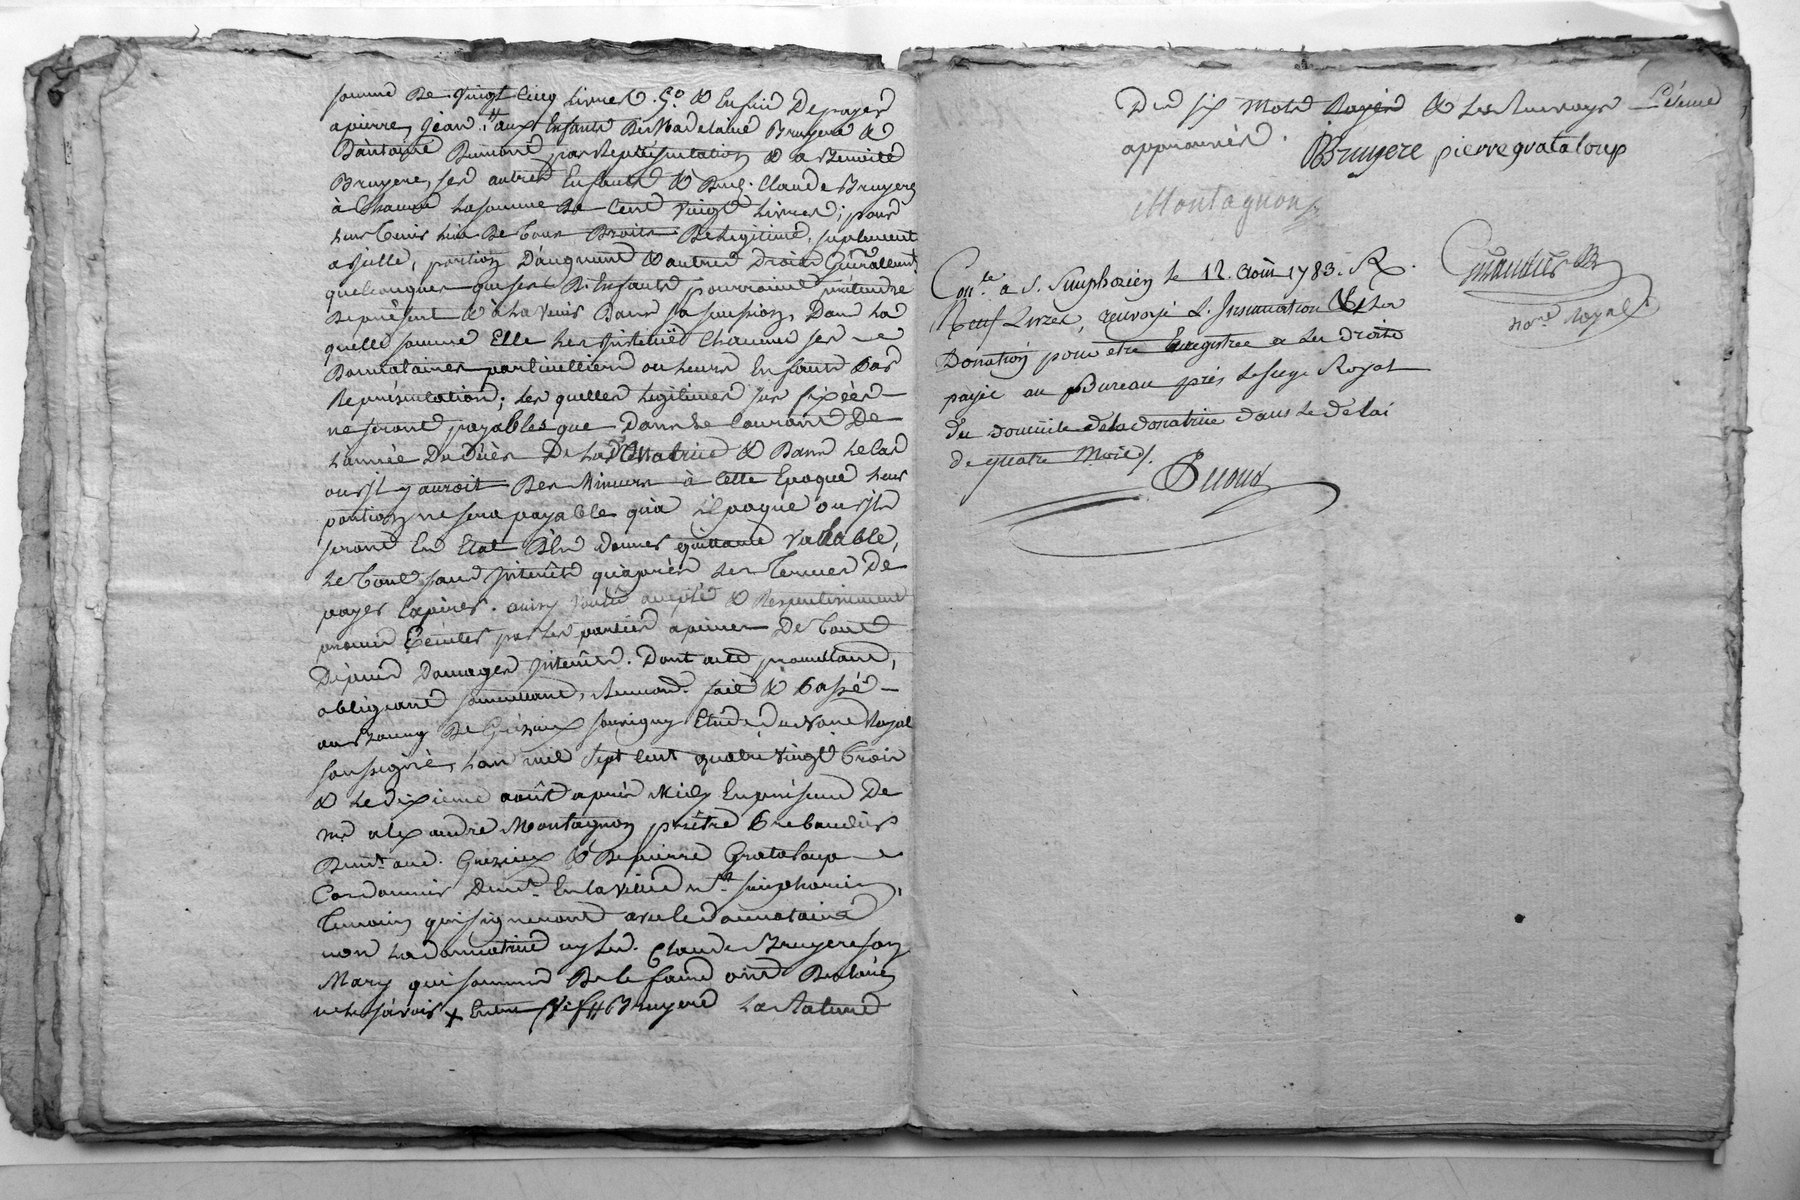 somme de vingt cinq Livres. 5.o & Enfin De payer
a pierre, jean, # aux Enfants De Madelaine Bruyere &
D'antoine Dumont par Représentation & a Benoite
Bruyere, ses autres Enfants & dud. Claude Bruyere
à Chacun La somme De Cent vingt Livres; pour
leur tenir lieu De tous Droits De Légitime, suplement
a jcelle, portion D'augment & autres Droits Généralement
quelconques que ses D. Enfants pourroient prétendre
De présent & à La venir Dans sa succession, Dans La
quelle somme Elle Les jnstitüe Chacun ses
Donnataires particulliers ou Leurs Enfants Par
Représentation; Les quelles Légitimes sus fixées
ne seront payables que Dans Le Courant De
L'année Du Décès De La Donnatrice & Dans Le Cas
ou jl y auroit Des Mineurs à Cette Epoque Leur
portion ne sera payable qu'à L'Epoque ou jls
seront En Etat D'En donner quittance vallable,
Le tout sans jnterêts qu'aprés Les termes De
payer Expirés. ainsy voulu accepté & Respectivement
promis Exécuter par Les parties a peine De tout
Dépens Domages jnterêts. Dont acte promettant,
obligeant soumettant, Renonc. fait & Passé
au Bourg De Grézieux souvigny Etude du no.re Royal
soussigné, L'an mil sept Cent quatre vingt trois
& Le Dixieme août aprés Midy En présence De
m.r alexandre Montagnon prêtre Prébandier
Dem.t aud. Grézieux & De pierre Grataloup
Cordonnier Dem.t En La ville de S.t simphorien,
temoins qui signeront avec le donnataire
non La donnatrice ny led. Claude Bruyere son
Mary qui sommés De le faire ont Declaré
ne le sçavoir x Entre vifs # Bruyere
Des six mots Rayés & Les Renvoys
approuvés. Bruyere pierre grataloup
Montagnon
no.re royal
Con.lé a S. Simphorien le 12. Août 1783. R
Neuf Livres, renvoyé L'Insinuation & La
Donation pour être Enregistrée & Les Droits
payés au Bureau prés Le siege Royal
du Domicile de la donatrice dans Le delai
de quatre Mois.